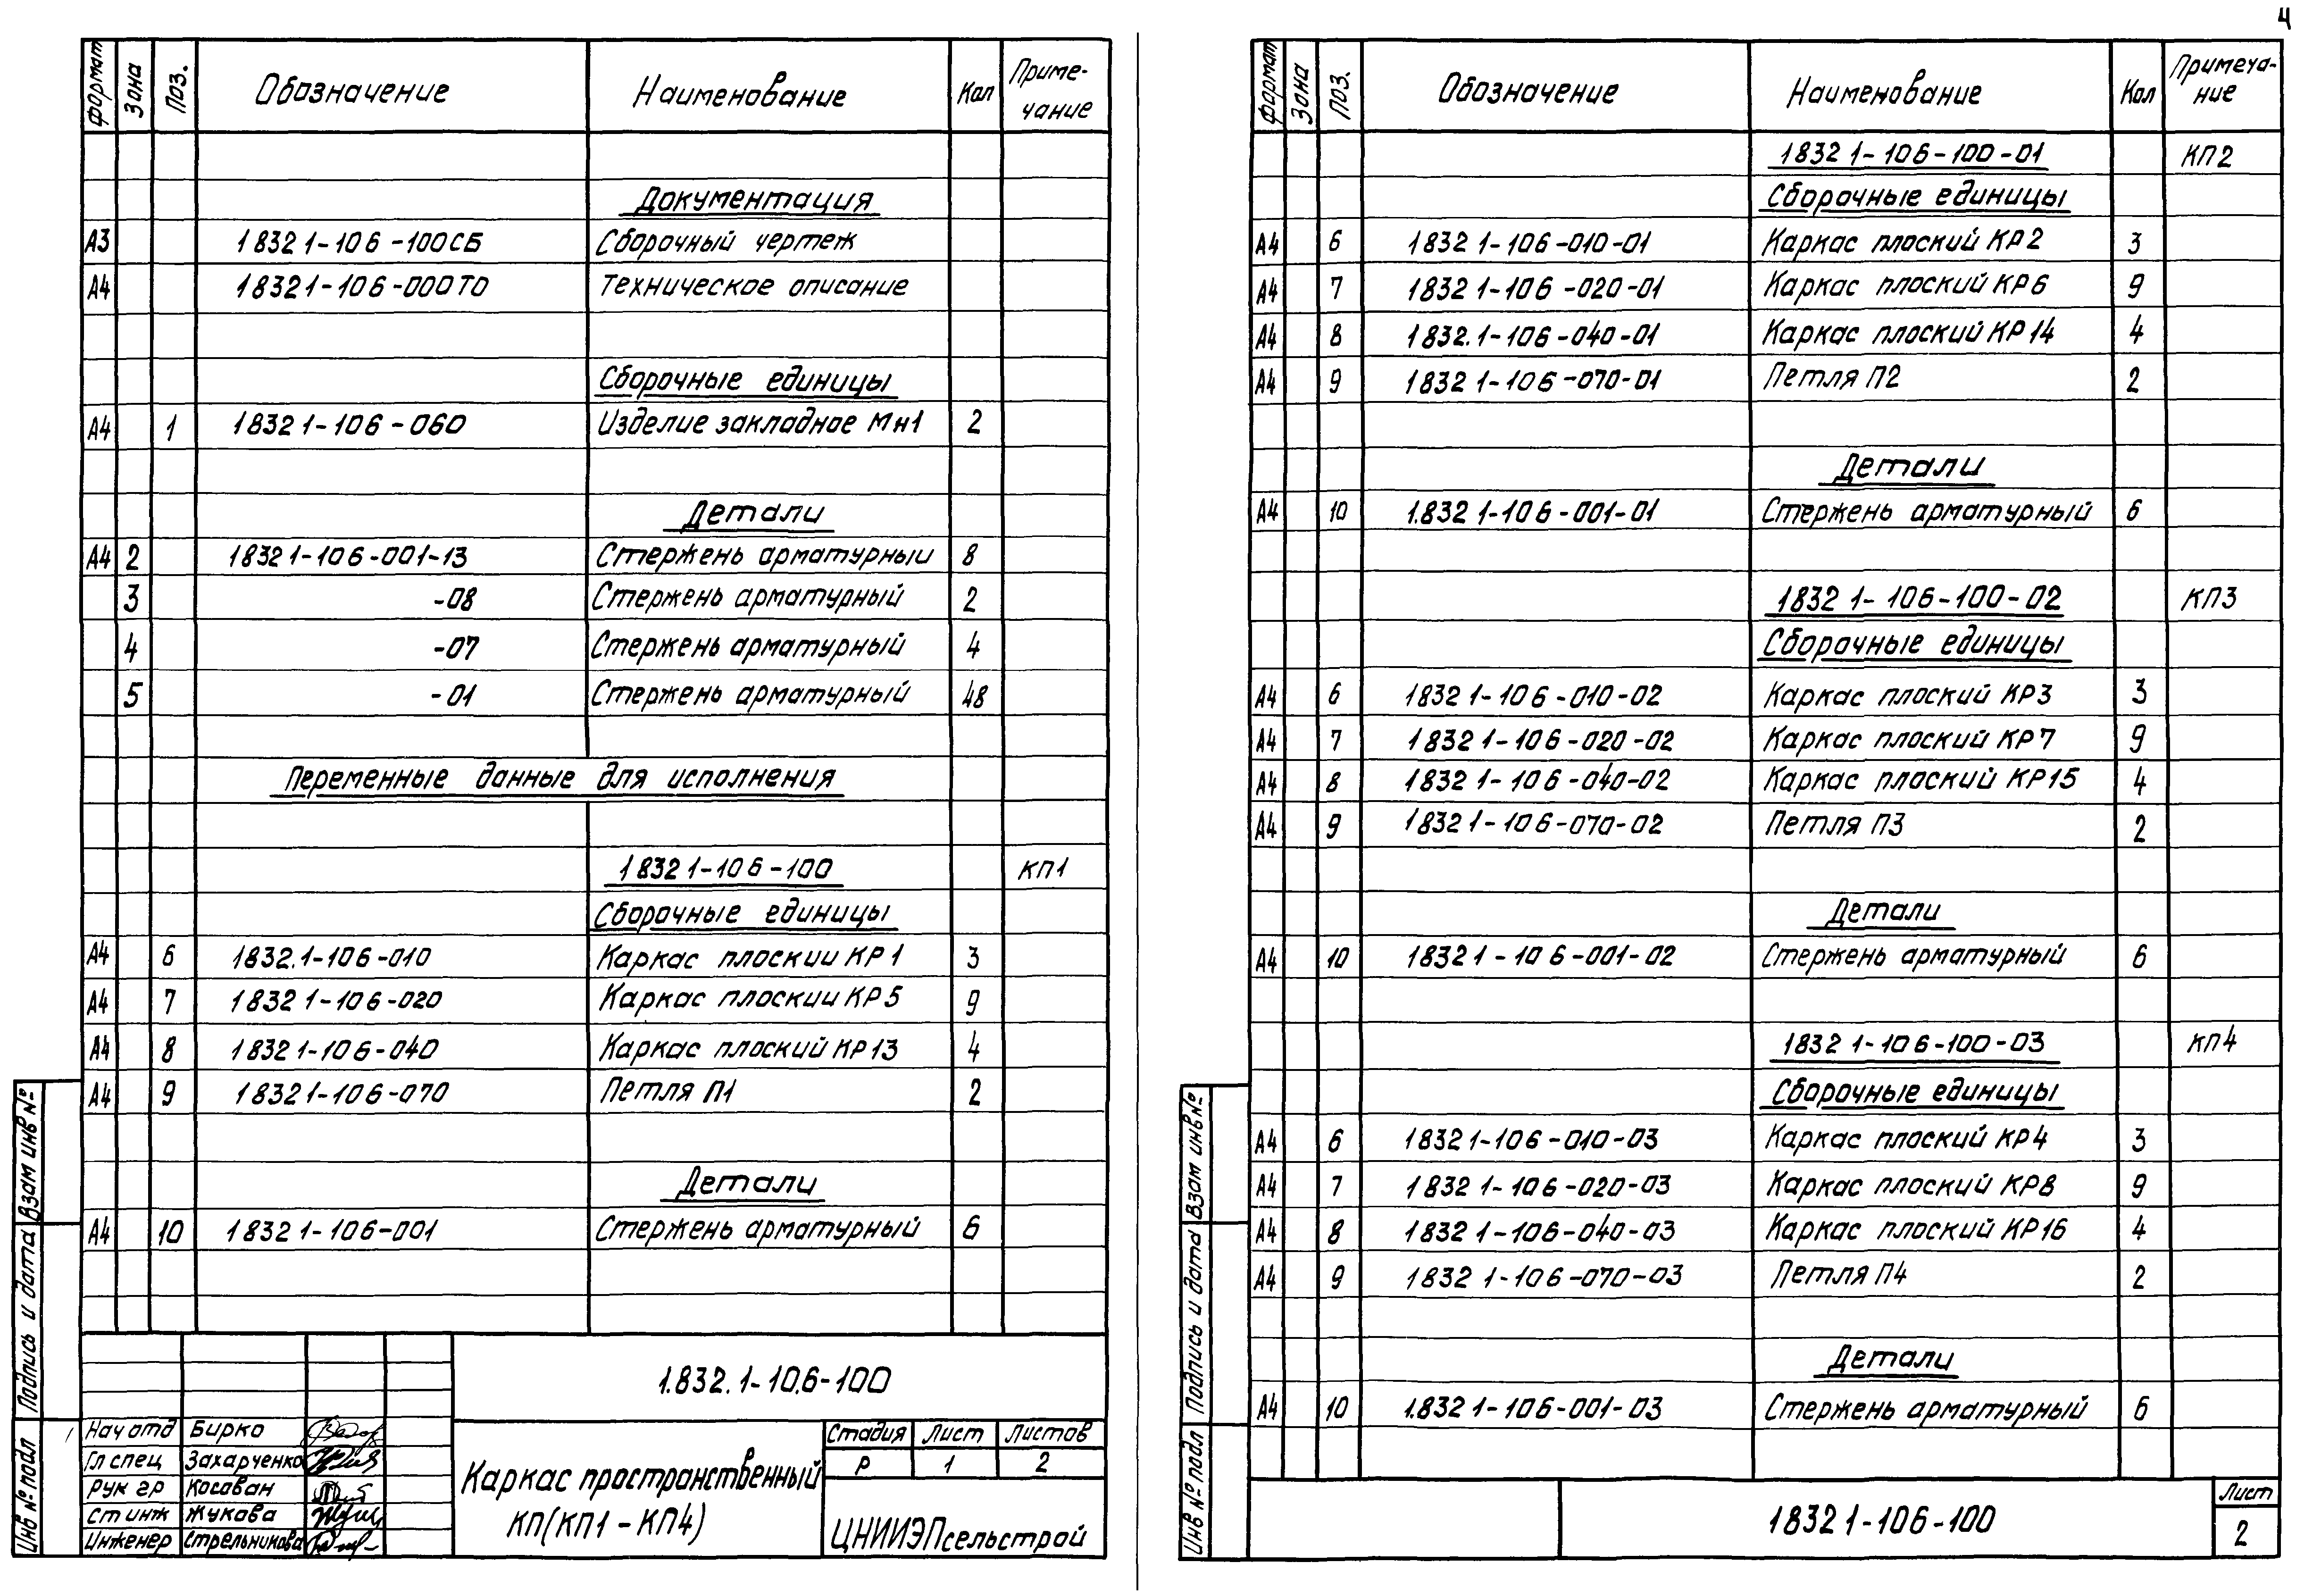 4
Формат Зона Поз. Обозначение Наименование Кол Приме-
чание
Документация
А3 1832 1-106-100СБ Сборочный чертеж
А4 1832 1-106-000ТО Техническое описание
Сборочные единицы
А4 1 1832 1-106-060 Изделие закладное Мн1 2
Детали
А4 2 1832 1-106-001-13 Стержень арматурный 8
3 -08 Стержень арматурный 2
4 -07 Стержень арматурный 4
5 -01 Стержень арматурный 48
Переменные данные для исполнения
1832 1-106-100 КП1
Сборочные единицы
А4 6 1832.1-106-010 Каркас плоский КР1 3
А4 7 1832 1-106-020 Каркас плоский КР5 9
А4 8 1832 1-106-040 Каркас плоский КР13 4
А4 9 1832 1-106-070 Петля П1 2
Детали
А4 10 1832 1-106-001 Стержень арматурный 6
1.832.1-10.6-100
Нач отд Бирко
Гл спец Захарченко
Рук гр Косован
Ст инж Жукова
Инженер Стрельникова
Каркас пространственный
КП(КП1-КП4)
Стадия Лист Листов
Р 1 2
ЦНИИЭПсельстрой
Взам инв №
Подпись и дата
Инв № подл
Формат Зона Поз. Обозначение Наименование Кол Примеча-
ние
1832 1-106-100-01 КП2
Сборочные единицы
А4 6 1832 1-106-010-01 Каркас плоский КР2 3
А4 7 1832 1-106-020-01 Каркас плоский КР6 9
А4 8 1832.1-106-040-01 Каркас плоский КР14 4
А4 9 1832 1-106-070-01 Петля П2 2
Детали
А4 10 1.832 1-106-001-01 Стержень арматурный 6
1832 1-106-100-02 КП3
Сборочные единицы
А4 6 1832 1-106-010-02 Каркас плоский КР3 3
А4 7 1832 1-106-020-02 Каркас плоский КР7 9
А4 8 1832 1-106-040-02 Каркас плоский КР15 4
А4 9 1832 1-106-070-02 Петля П3 2
Детали
А4 10 1832 1-106-001-02 Стержень арматурный 6
1832 1-106-100-03 КП4
Сборочные единицы
А4 6 1832 1-106-010-03 Каркас плоский КР4 3
А4 7 1832 1-106-020-03 Каркас плоский КР8 9
А4 8 1832 1-106-040-03 Каркас плоский КР16 4
А4 9 1832 1-106-070-03 Петля П4 2
Детали
А4 10 1.832 1-106-001-03 Стержень арматурный 6
1832 1-106-100
Лист
2
Взам инв №
Подпись и дата
Инв № подл